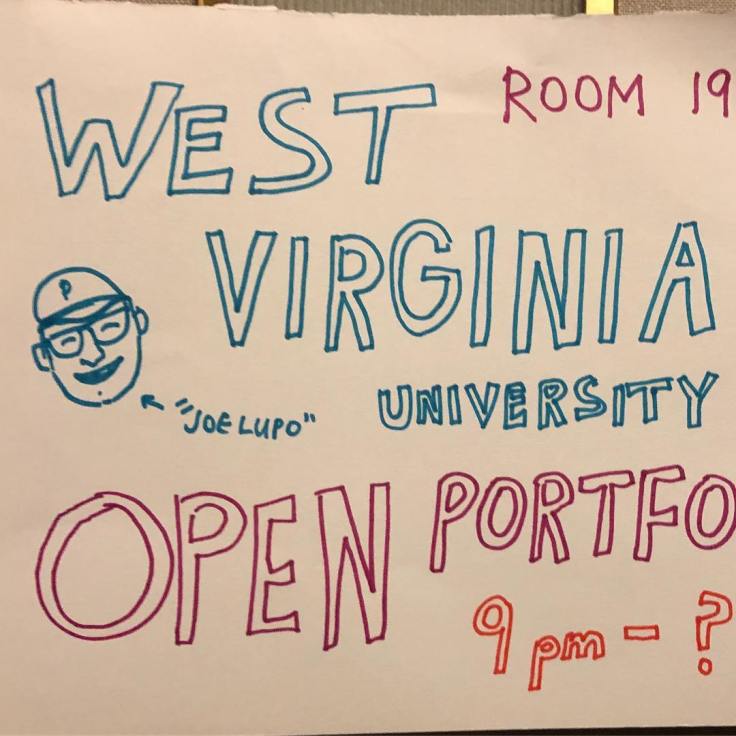 ROOM 19
WEST
VIRGINIA
P
"JOE LUPO"
UNIVERSITY
OPEN PORTFO
9 pm - ?